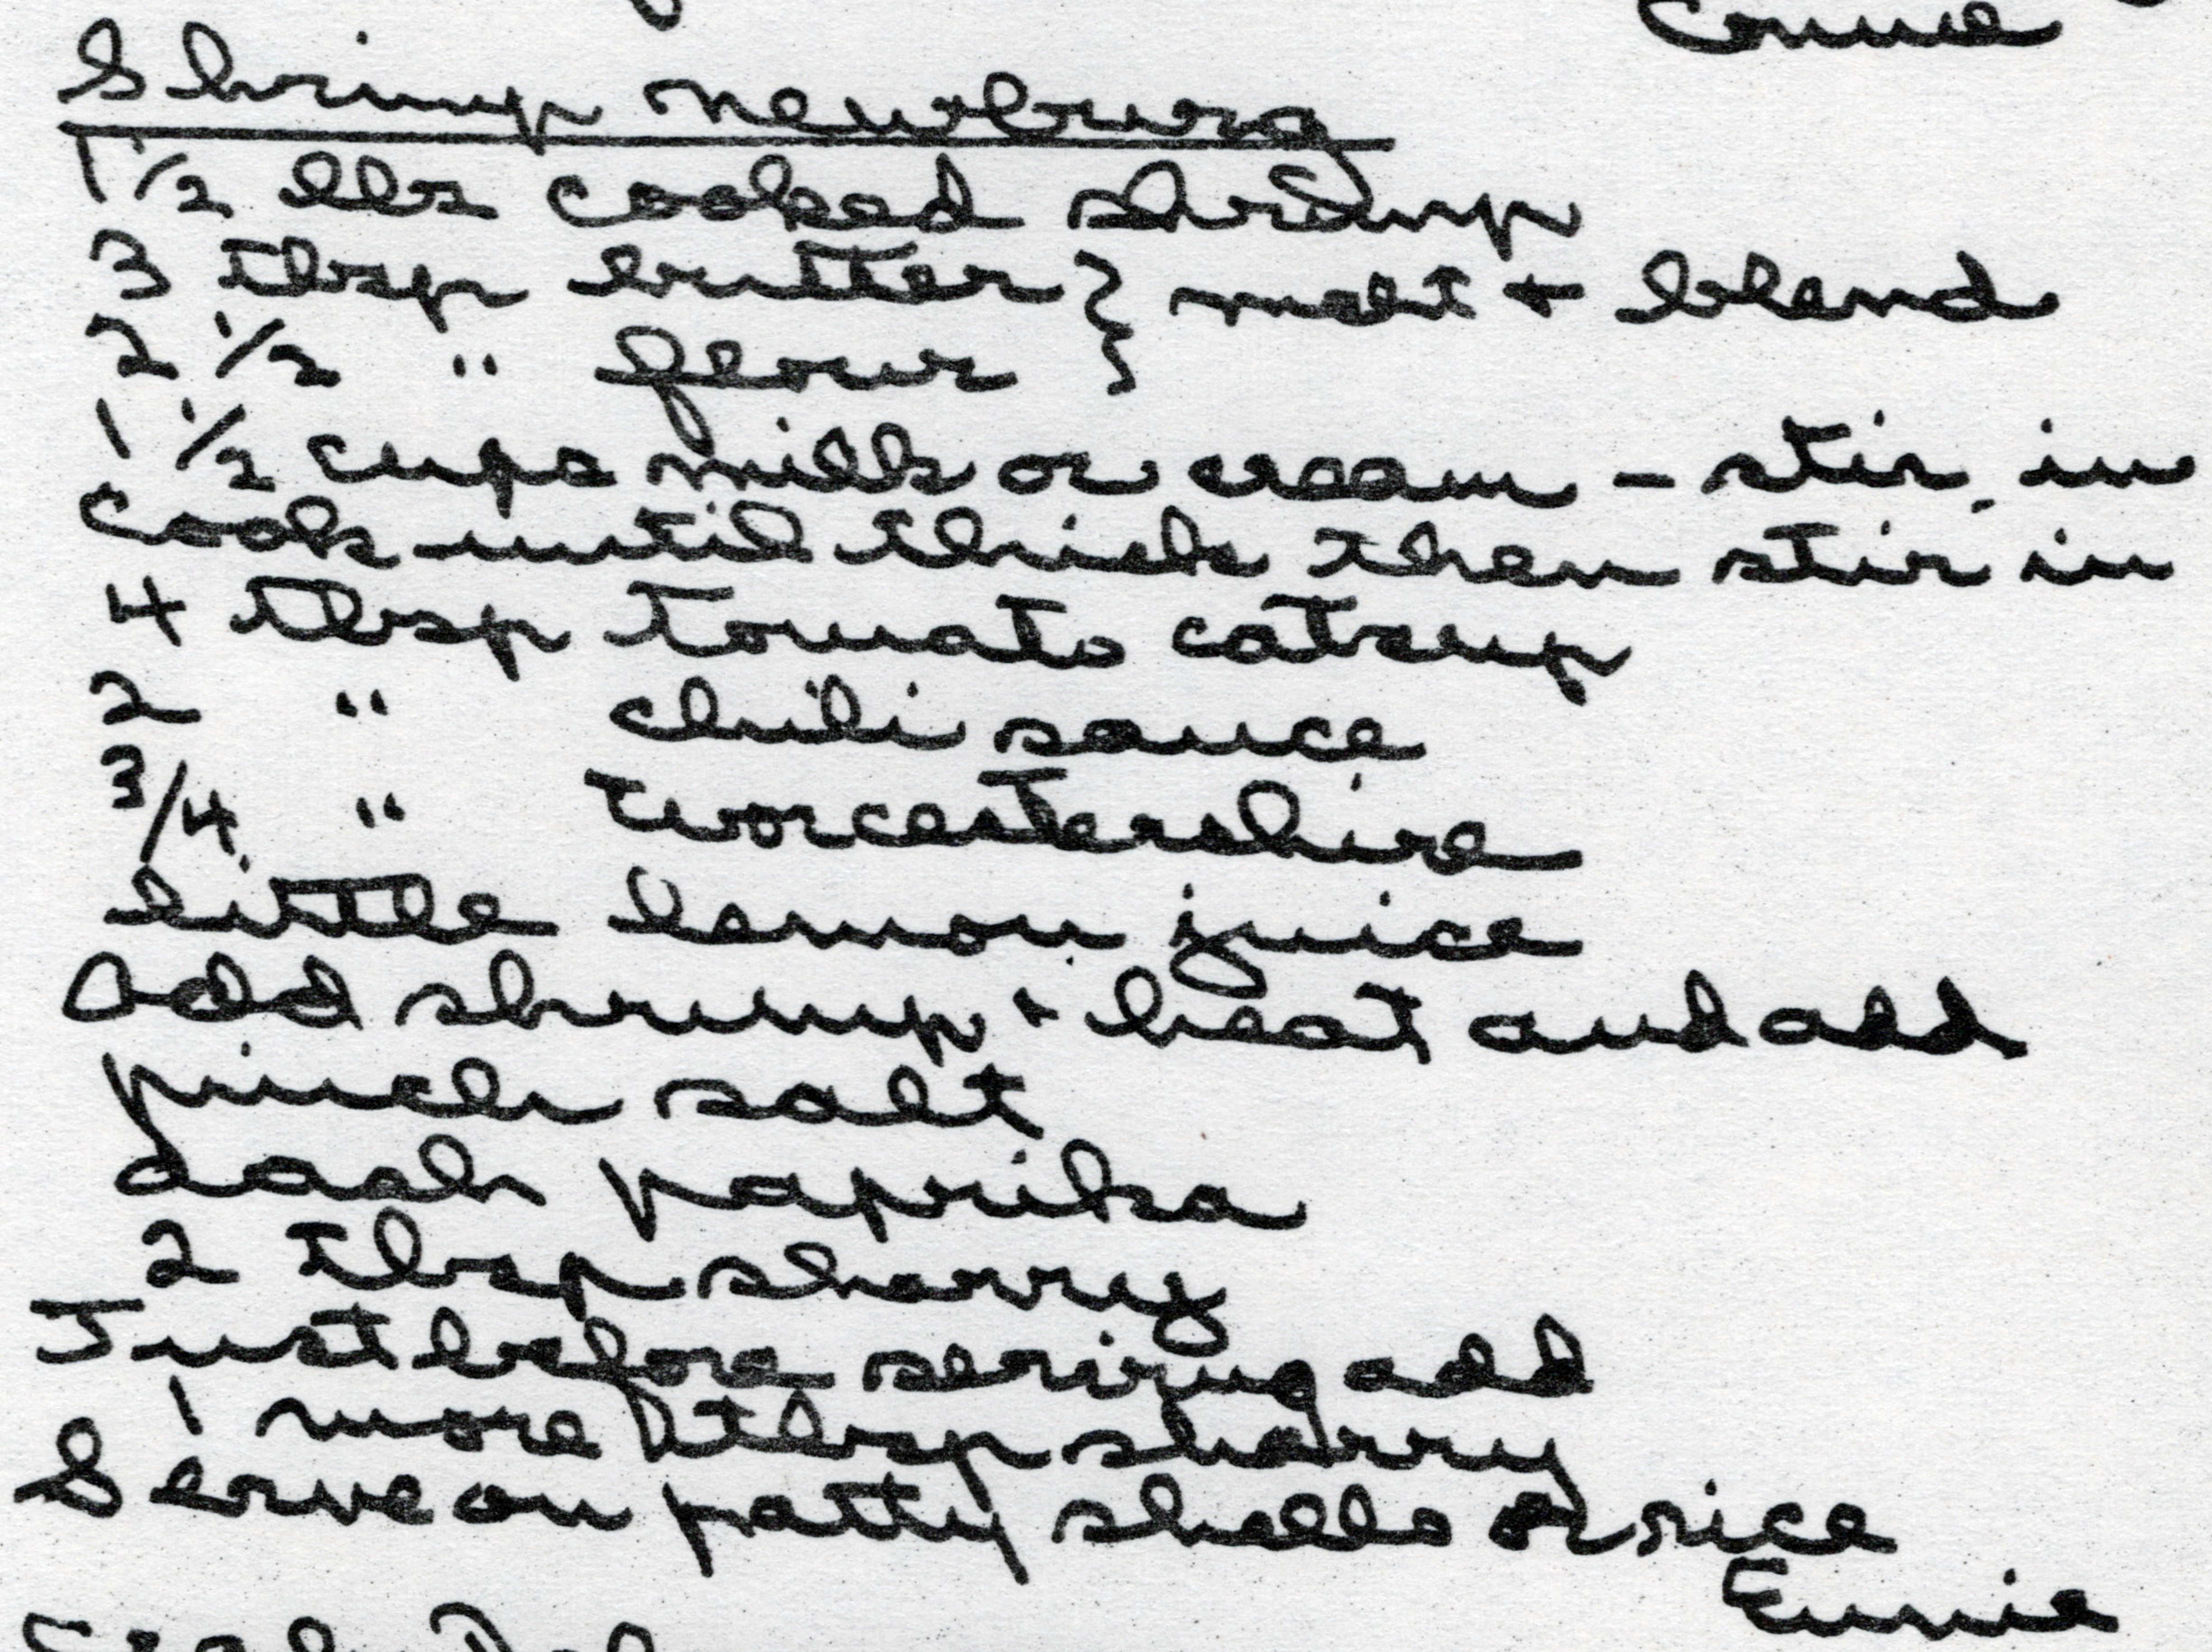 Connie
Shrimp Newburg
1 1/2 lbs cooked shrimp
3 tbsp butter } melt + blend
2 1/2 " flour }
1 1/2 cups milk or cream - stir in
Cook until thick then stir in
4 tbsp tomato catsup
2 " chili sauce
3/4 " Worcestershire
little lemon juice
Add shrimp + heat and add
pinch salt
dash paprika
2 tbsp sherry
Just before serving add
1 more tbsp sherry
Serve on patty shells or rice
Eunie